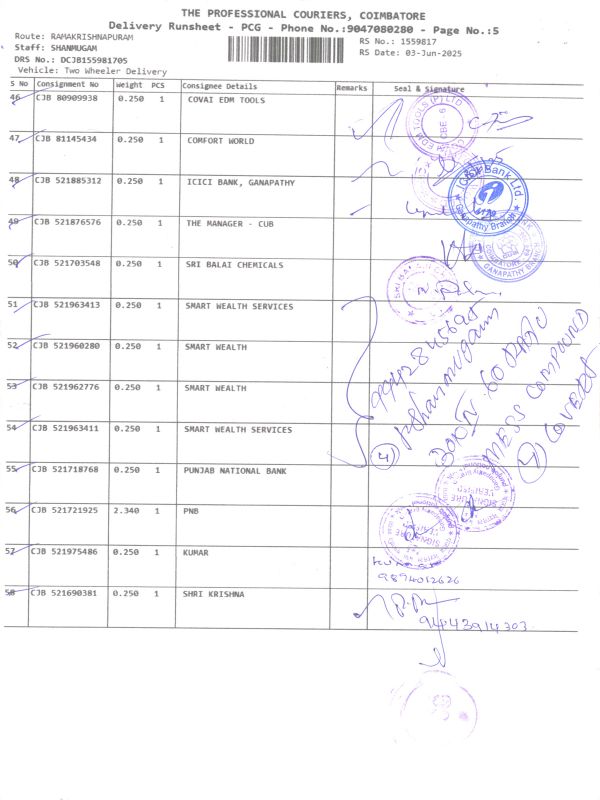 THE PROFESSIONAL COURIERS, COIMBATORE
Delivery Runsheet - PCG - Phone No.:9047080280 - Page No.:5
Route: RAMAKRISHNAPURAM
RS No.: 1559817
Staff: SHANMUGAM
RS Date: 03-Jun-2025
DRS No.: DCJB155981705
Vehicle: Two Wheeler Delivery
S No Consignment No Weight PCS Consignee Details Remarks Seal & Signature
46 CJB 80909938 0.250 1 COVAI EDM TOOLS
47 CJB 81145434 0.250 1 COMFORT WORLD
48 CJB 521885312 0.250 1 ICICI BANK, GANAPATHY
ICICI Bank Ltd.
Ganapathy Branch
49 CJB 521876576 0.250 1 THE MANAGER - CUB
GANAPATHY BRANCH
50 CJB 521703548 0.250 1 SRI BALAI CHEMICALS
51 CJB 521963413 0.250 1 SMART WEALTH SERVICES
52 CJB 521960280 0.250 1 SMART WEALTH
53 CJB 521962776 0.250 1 SMART WEALTH
54 CJB 521963411 0.250 1 SMART WEALTH SERVICES
99942845695
PShanmugam
MESS COMPOUND
4 COVERS
4
55 CJB 521718768 0.250 1 PUNJAB NATIONAL BANK
56 CJB 521721925 2.340 1 PNB
57 CJB 521975486 0.250 1 KUMAR
9894012626
58 CJB 521690381 0.250 1 SHRI KRISHNA
9443914303